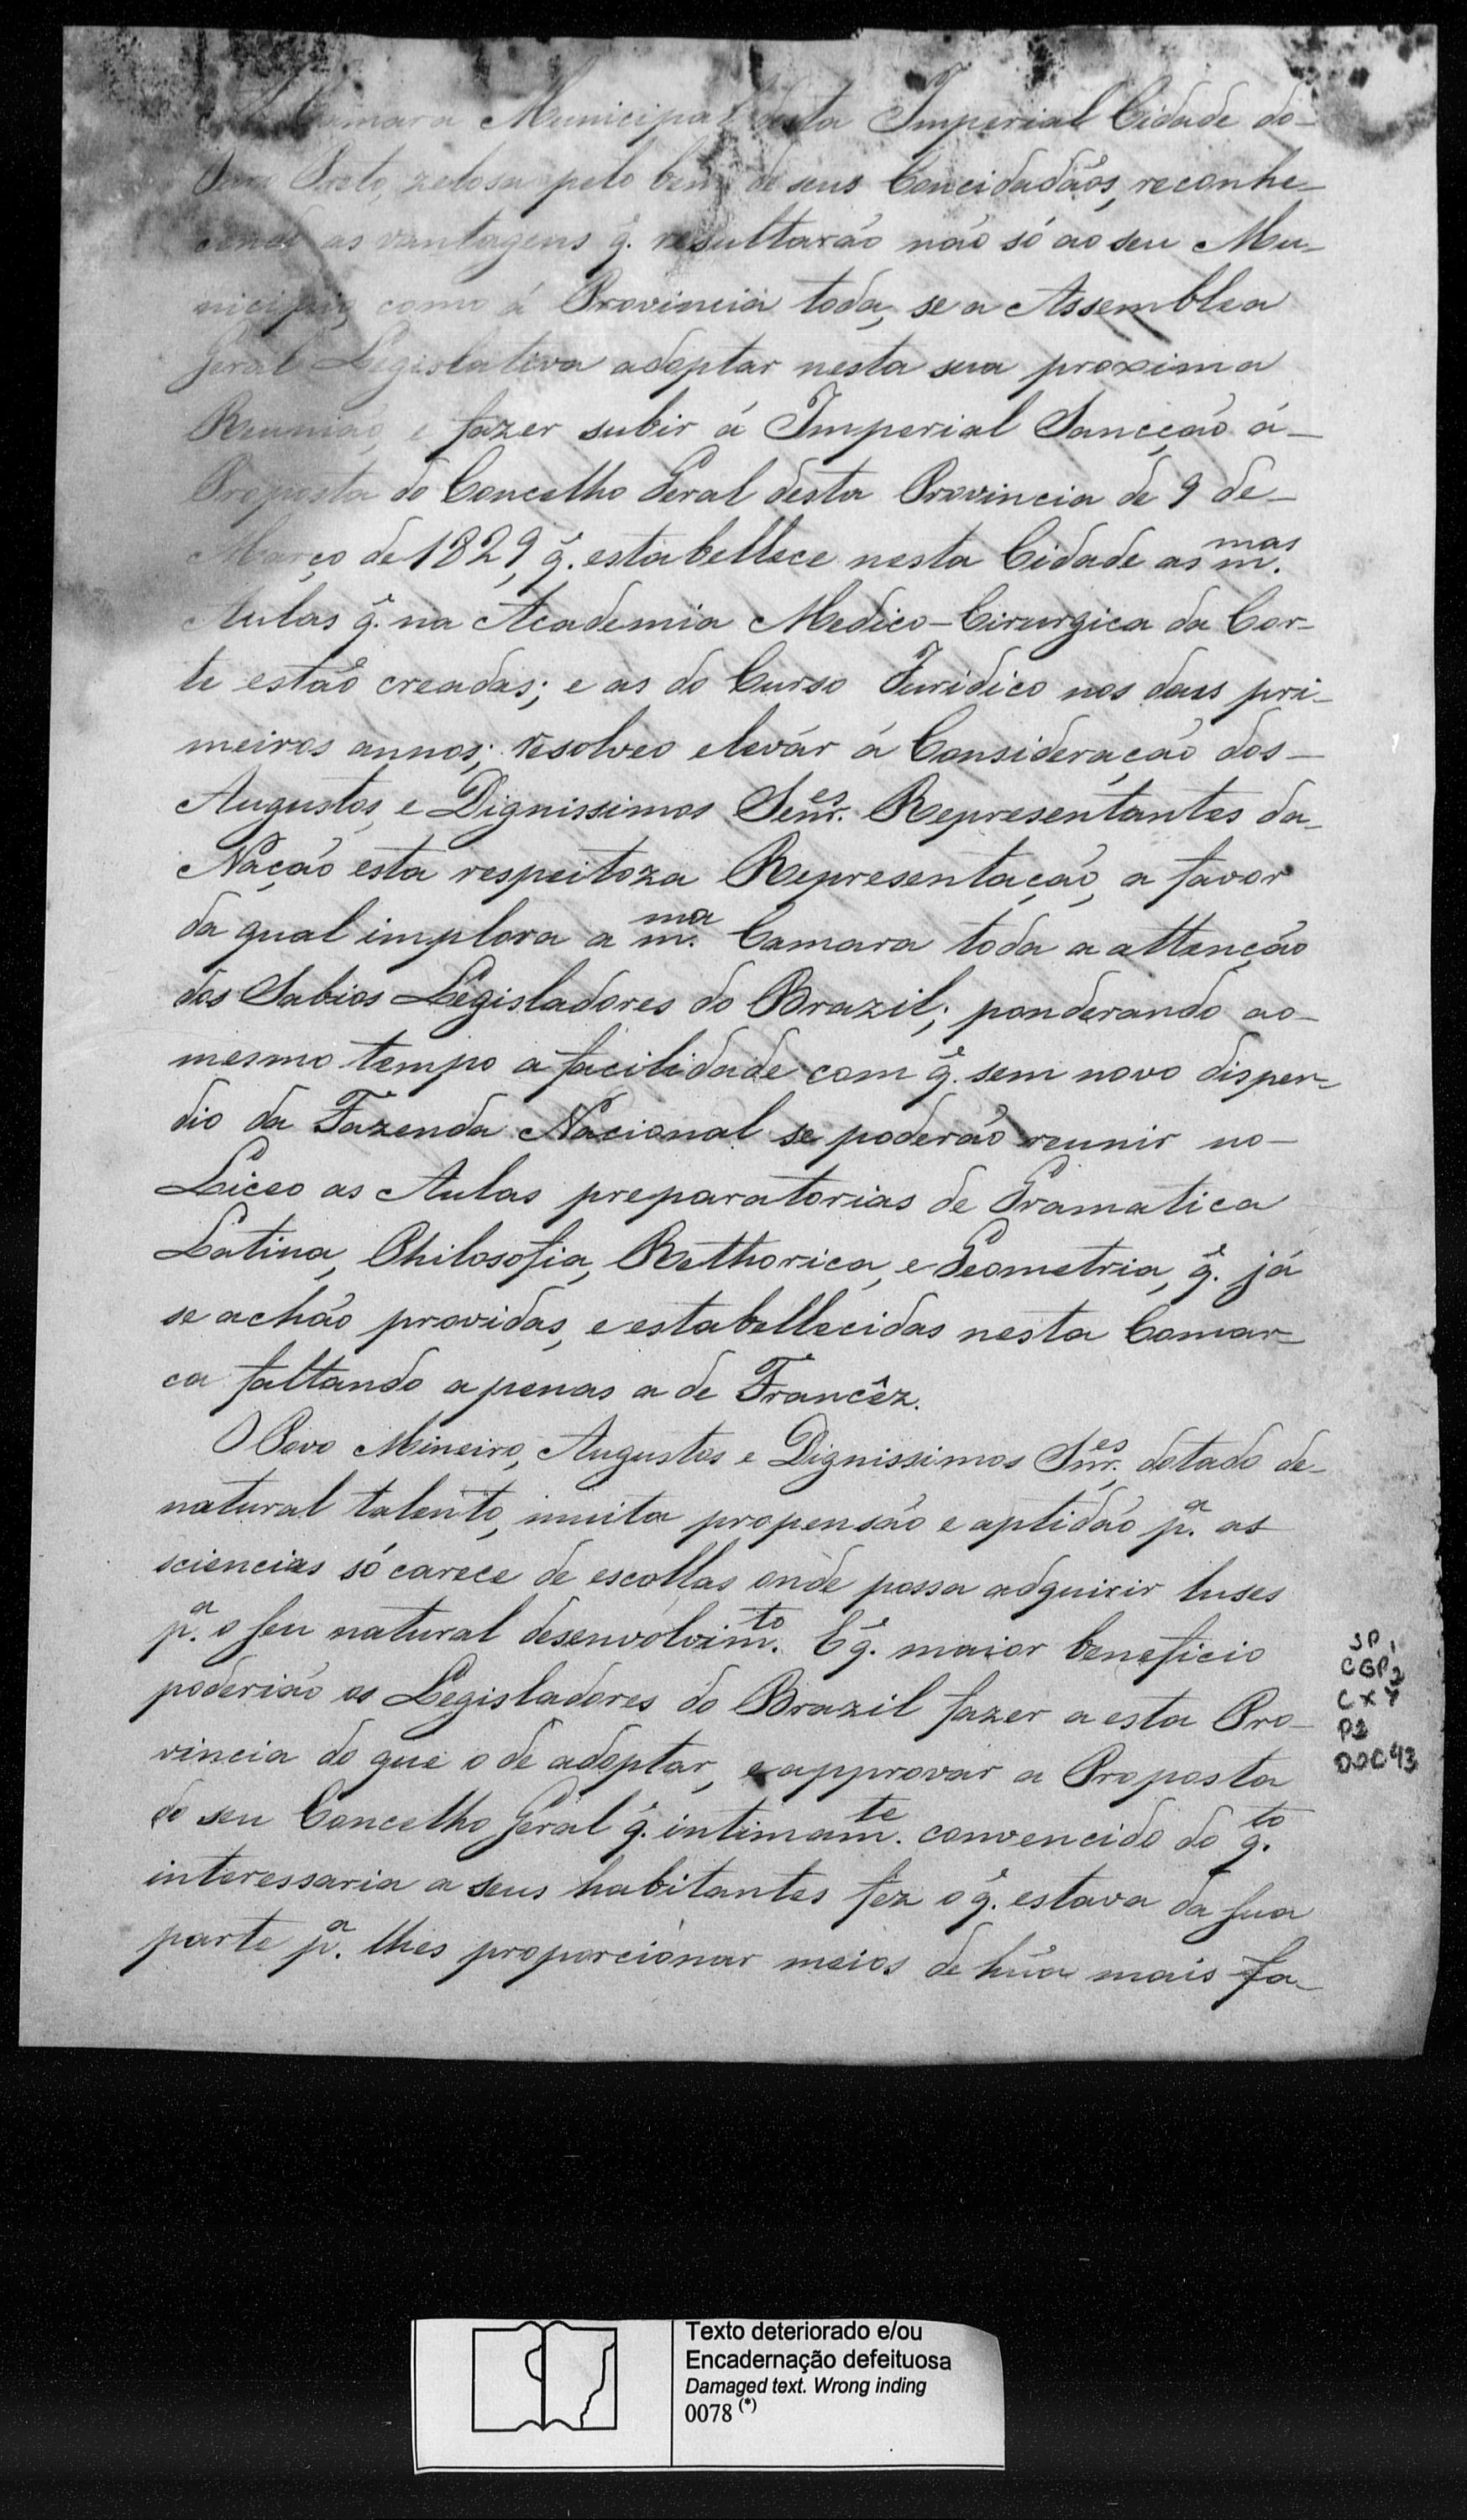 Camara Municipal desta Imperial Cidade do
Ouro Preto zelosa pelo bem de seus Concidadãos, reconhe-
cendo as vantagens q.̃ resultarão não só ao seu Mu-
nicipio, como á Provincia toda, se a Assemblea
Geral Legislativa adoptar nesta sua proxima
Reunião, e fazer subir á Imperial Sancção á
Proposta do Concelho Geral desta Provincia de 9 de
Março de 1829, q.̃ estabellece nesta Cidade as m.mas
Aulas q.̃ na Academia Medico-Cirurgica da Cor-
te estão creadas; e as do Curso Juridico nos dous pri-
meiros annos; resolveo elevár á Consideração dos
Augustos, e Dignissimos Senr.es Representantes da
Nação esta respeitoza Representação, a favor
da qual implora a m.ma Camara toda a attenção
dos Sabios Legisladores do Brazil; ponderando ao
mesmo tempo a facilidade com q.̃ sem novo dispen-
dio da Fazenda Nacional se poderão reunir no
Liceo as Aulas preparatorias de Gramatica
Latina, Philosofia, Rethorica, e Geometria, q.̃ já
se achão providas, e estabellecidas nesta Comar-
ca faltando apenas a de Francêz.
O Povo Mineiro, Augustos e Dignissimos Snr.es, dotado de
natural talento, muita propensão e aptidão p.a as
sciencias só carece de escollas onde possa adquirir luses
p.a o seu natural desenvolvim.to E q.̃ maior beneficio
poderião os Legisladores do Brazil fazer a esta Pro-
vincia do que o de adoptar, e approvar a Proposta
do seu Concelho Geral q.̃ intimam.te convencido do q.to
interessaria a seus habitantes fez o q.̃ estava da sua
parte p.a lhes proporcionar meios de hũa mais fa-
SP 1
CGP 2
CX 7
P2
DOC 43
Texto deteriorado e/ou
Encadernação defeituosa
Damaged text. Wrong inding
0078 (*)